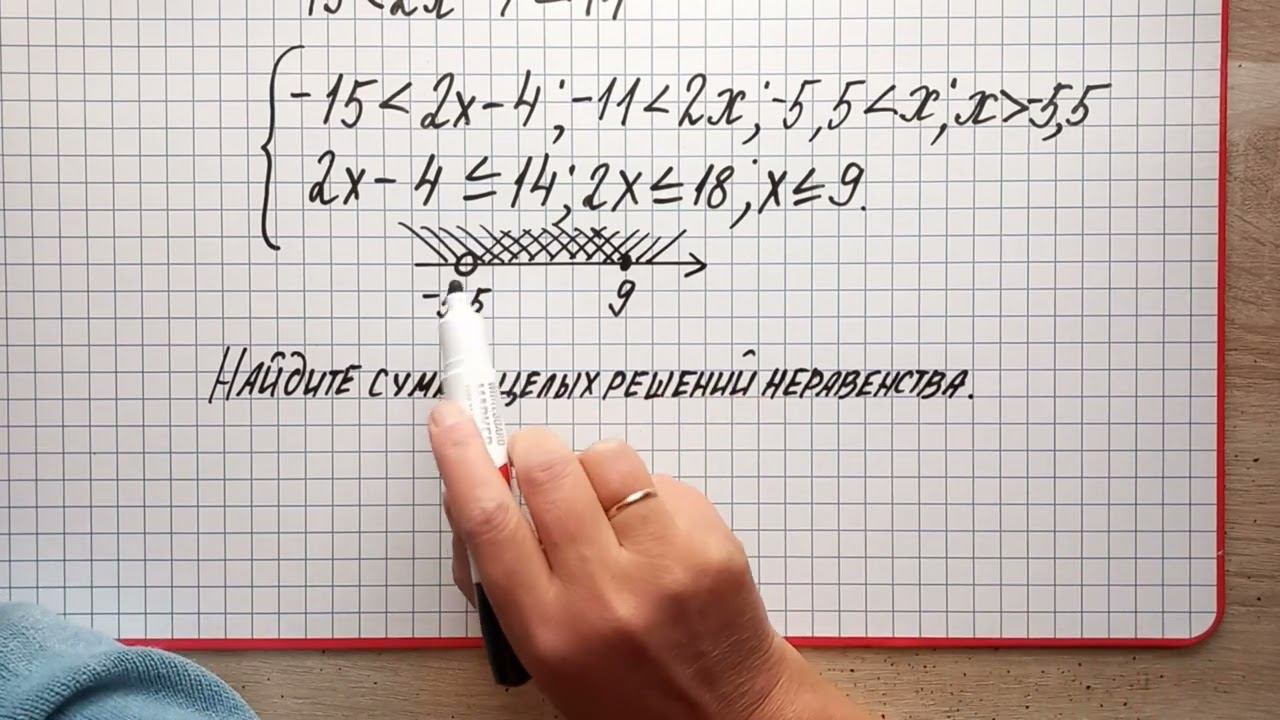 -15<2x-4; -11<2x; -5,5<x; x>-5,5
2x-4≤14; 2x≤18; x≤9.
9
НАЙДИТЕ ЦЕЛЫХ РЕШЕНИЙ НЕРАВЕНСТВА.